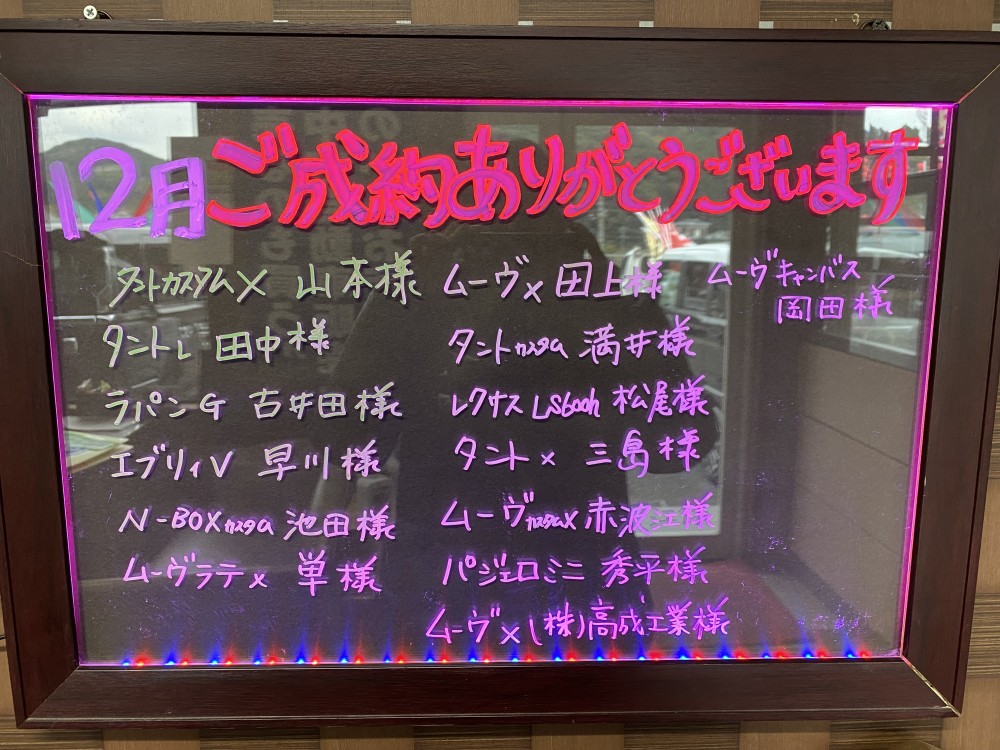 12月ご成約ありがとうございます
タントカスタムX 山本様
タントL 田中様
ラパンG 古井田様
エブリィV 早川様
N-BOXカスタム 池田様
ムーヴラテX 単様
ムーヴX 田上様
タントカスタム 満井様
レクサスLS600h 松尾様
タントX 三島様
ムーヴカスタムX 赤波江様
パジェロミニ 秀平様
ムーヴX (株)高成工業様
ムーヴキャンバス
岡田様